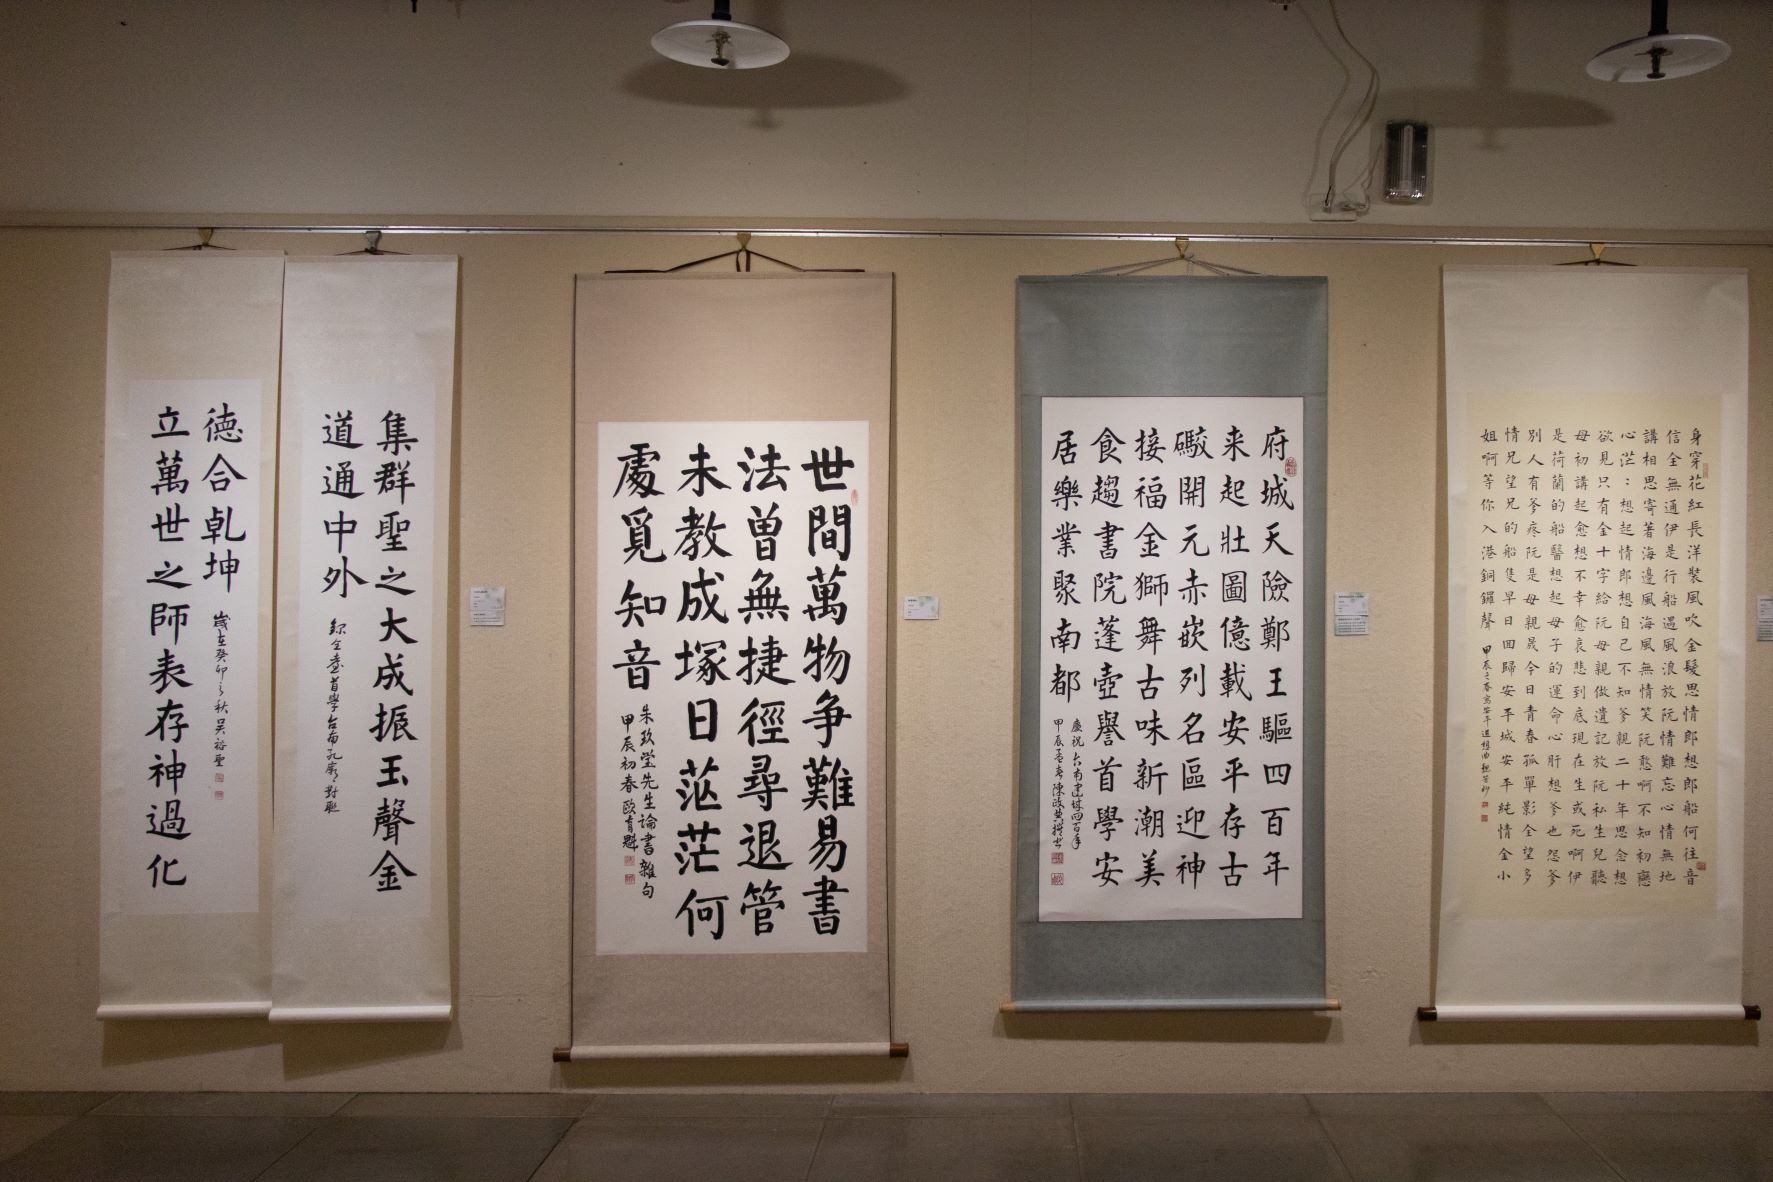 集群聖之大成振玉聲金
道通中外
錄全臺首學台南孔廟對聯
德合乾坤
立萬世之師表存神過化
歲在癸卯之秋吳裕聖
世間萬物争難易書
法曾無捷徑尋退管
未教成塚日茫茫何
處覓知音
朱玖瑩先生論書雜句
甲辰初春歐青魁
府城天險鄭王驅四百年
来起壯圖億載安平存古
礮開元赤嵌列名區迎神
接福金獅舞古味新潮美
食趨書院蓬壺譽首學安
居樂業聚南都
慶祝台南建城四百年
甲辰孟春陳政撰书
身穿花紅長洋裝風吹金髮思情郎想郎船何往音
信全無通伊是行船遇風浪放阮情難忘心情無地
講相思寄著海邊風海風無情笑阮憨啊不知初戀
心茫：想起情郎想自己不知爹親二十年思念想
欲見只有金十字給阮母親做遺記放阮私生兒聽
母初講起愈想不幸愈哀悲到底現在生或死啊伊
是荷蘭的船醫想起母子的運命心肝想爹也怨爹
別人有爹疼阮是母親晟今日青春孤單影全望多
情兄望兄的船隻早日回歸安平城安平純情金小
姐啊等你入港銅鑼聲
甲辰之春寫安平追想曲